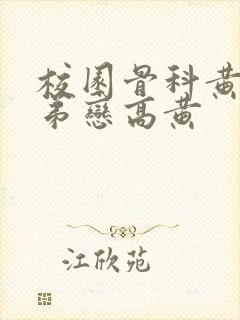 校園骨科黄
弟戀高黄
江欣苑